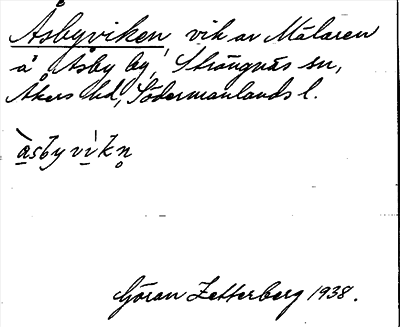 Åsbyviken, vik av Mälaren
å Åsby by, Strängnäs sn,
Åkers hd, Södermanlands l.
àsbyvìkn̥
Göran Zetterberg 1938.